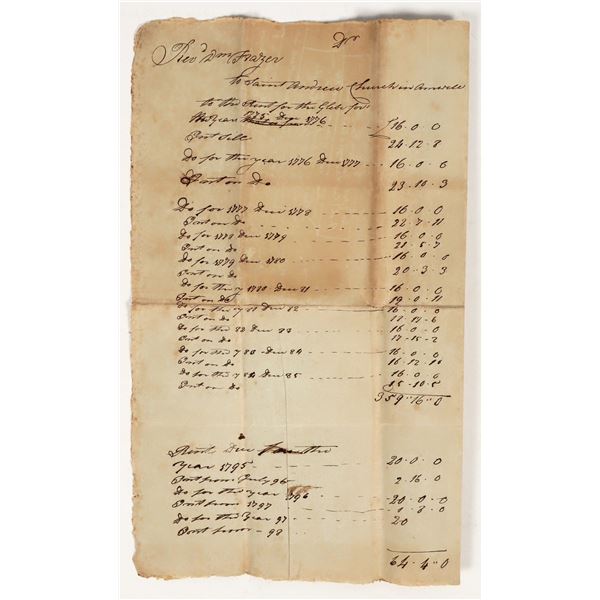 Dr
Revd Wm Frazer
to Saint Andrew Church in Amwell
to the Rent for the Glebe for
the Year 1775 Due 1776 £16.0.0
Int Till 24.12.8
Do for the year 1776 Due 1777 16.0.0
Int on Do 23.10.3
Do for 1777 Due 1778 16.0.0
Int on Do 22.7.11
Do for 1778 Due 1779 16.0.0
Int on Do 21.5.7
Do for 1779 Due 1780 16.0.0
Int on Do 20.3.3
Do for the y 1780 Due 81 16.0.0
Int on Do 19.0.11
Do for the y 81 Due 82 16.0.0
Int on Do 17.17.6
Do for the 82 Due 83 16.0.0
Int on Do 17.15.2
Do for the y 83 Due 84 16.0.0
Int on Do 16.12.10
Do for the y 84 Due 85 16.0.0
Int on Do 15.10.5
359"16"0
Rent Due for the
Year 1795 20.0.0
Int from July 96 2.16.0
Do for the year 1796 20.0.0
Int from 1797 1.8.0
Do for the Year 97 20
Int from 98
64.4"0